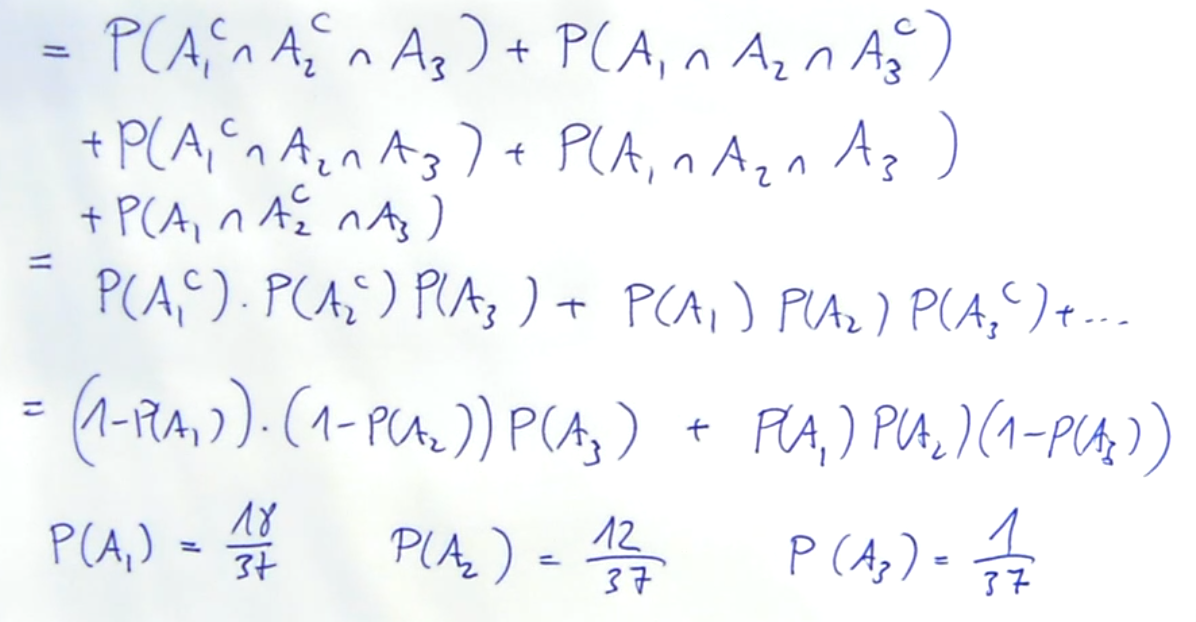 = P(A₁ᶜ ∩ A₂ᶜ ∩ A₃) + P(A₁ ∩ A₂ ∩ A₃ᶜ)
+ P(A₁ᶜ ∩ A₂ ∩ A₃) + P(A₁ ∩ A₂ ∩ A₃)
+ P(A₁ ∩ A₂ᶜ ∩ A₃)
=
P(A₁ᶜ) · P(A₂ᶜ) P(A₃) + P(A₁) P(A₂) P(A₃ᶜ) + ...
= (1-P(A₁)) · (1-P(A₂)) P(A₃) + P(A₁) P(A₂) (1-P(A₃))
P(A₁) = 18/37 P(A₂) = 12/37 P(A₃) = 1/37